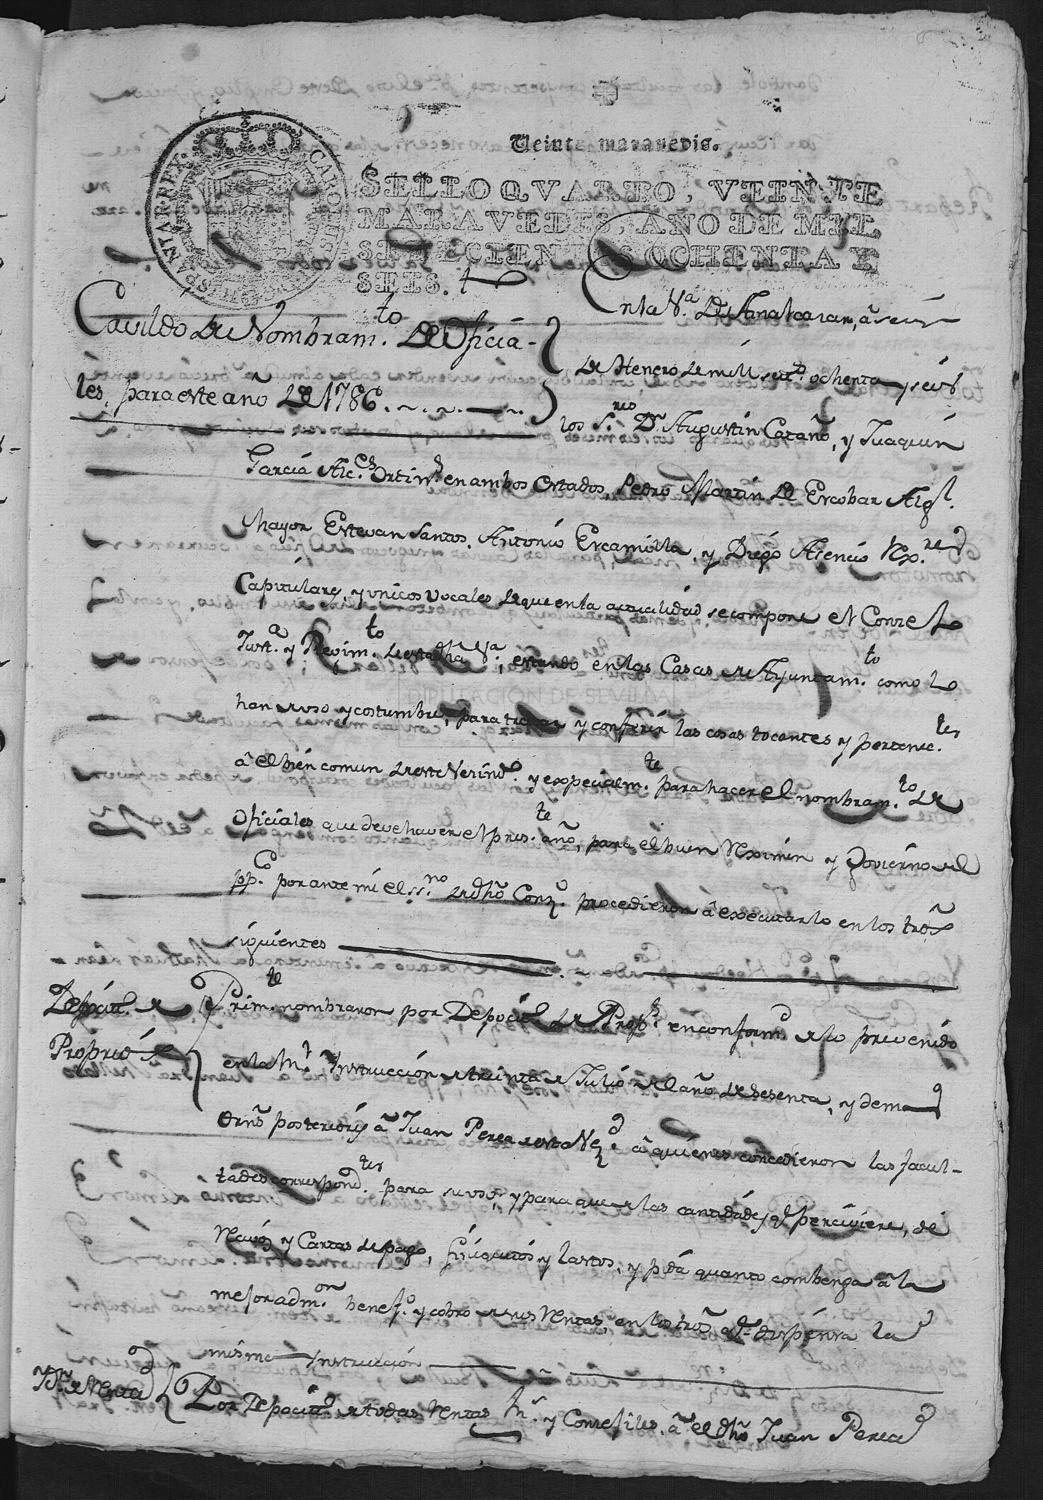 Veinte maravedis.
SELLO QVARTO, VEINTE
MARAVEDIS, AÑO DE MIL
SETECIENTOS OCHENTA Y
SEIS.
HISPANIAR.REX. CAROLUS
Cavildo de Nombram.to de Oficia-
les, para este año de 1786.
En la V.a de Aznalcazar, a seis
de Henero de mill set.s ochenta y seis
los S.res D.n Augustin Cataño, y Juaquin
Garcia Alc.es Ordin.s en ambos estados, Pedro Martin de Escobar Alg.l
Mayor Estevan Santos, Antonio Escamilla, y Diego Asencio Rex.res
Capitulares, y unicos vocales de que en la actualidad se compone el Conzejo
Just.a y Regim.to de esta dha V.a; estando en las Casas de Ayuntam.to como lo
han de uso y costumbre, para tratar y conferir las cosas tocantes y pertenec.tes
à el bien comun de este Vecind.o y expecialm.te para hacer el nombram.to de
Oficiales que deve haver el pres.te año, para el buen Reximen y Govierno del
pp.co por ante mi el ss.no de dho Conz.o procedieron à executarlo en los tros
siguientes
Deposit.o de
Proprios
Prim.te nombraron por Deposit.o de Prop.s en conform.d de lo prevenido
en la R.l Instrucción de treinta de Julio del año de sesenta, y demas
ordns posteriors à Juan Perea de esta Vez.d à quienes concedieron las facul-
tades correspond.tes para su uso, y para que de las cantidades q.e perciviere, dè
Recivos y Cartas de pago, finiquitos y lastos, y pida quanto combenga à la
mejor adm.on benef.o y cobro de sus Rentas, en los tros q.e dispensa la
misma Instrucción
Yd. de Rentas
Por Deposit.o de todas Rentas R.s y Concejiles à el dho Juan Perea
DIPUTACIÓN DE SEVILLA